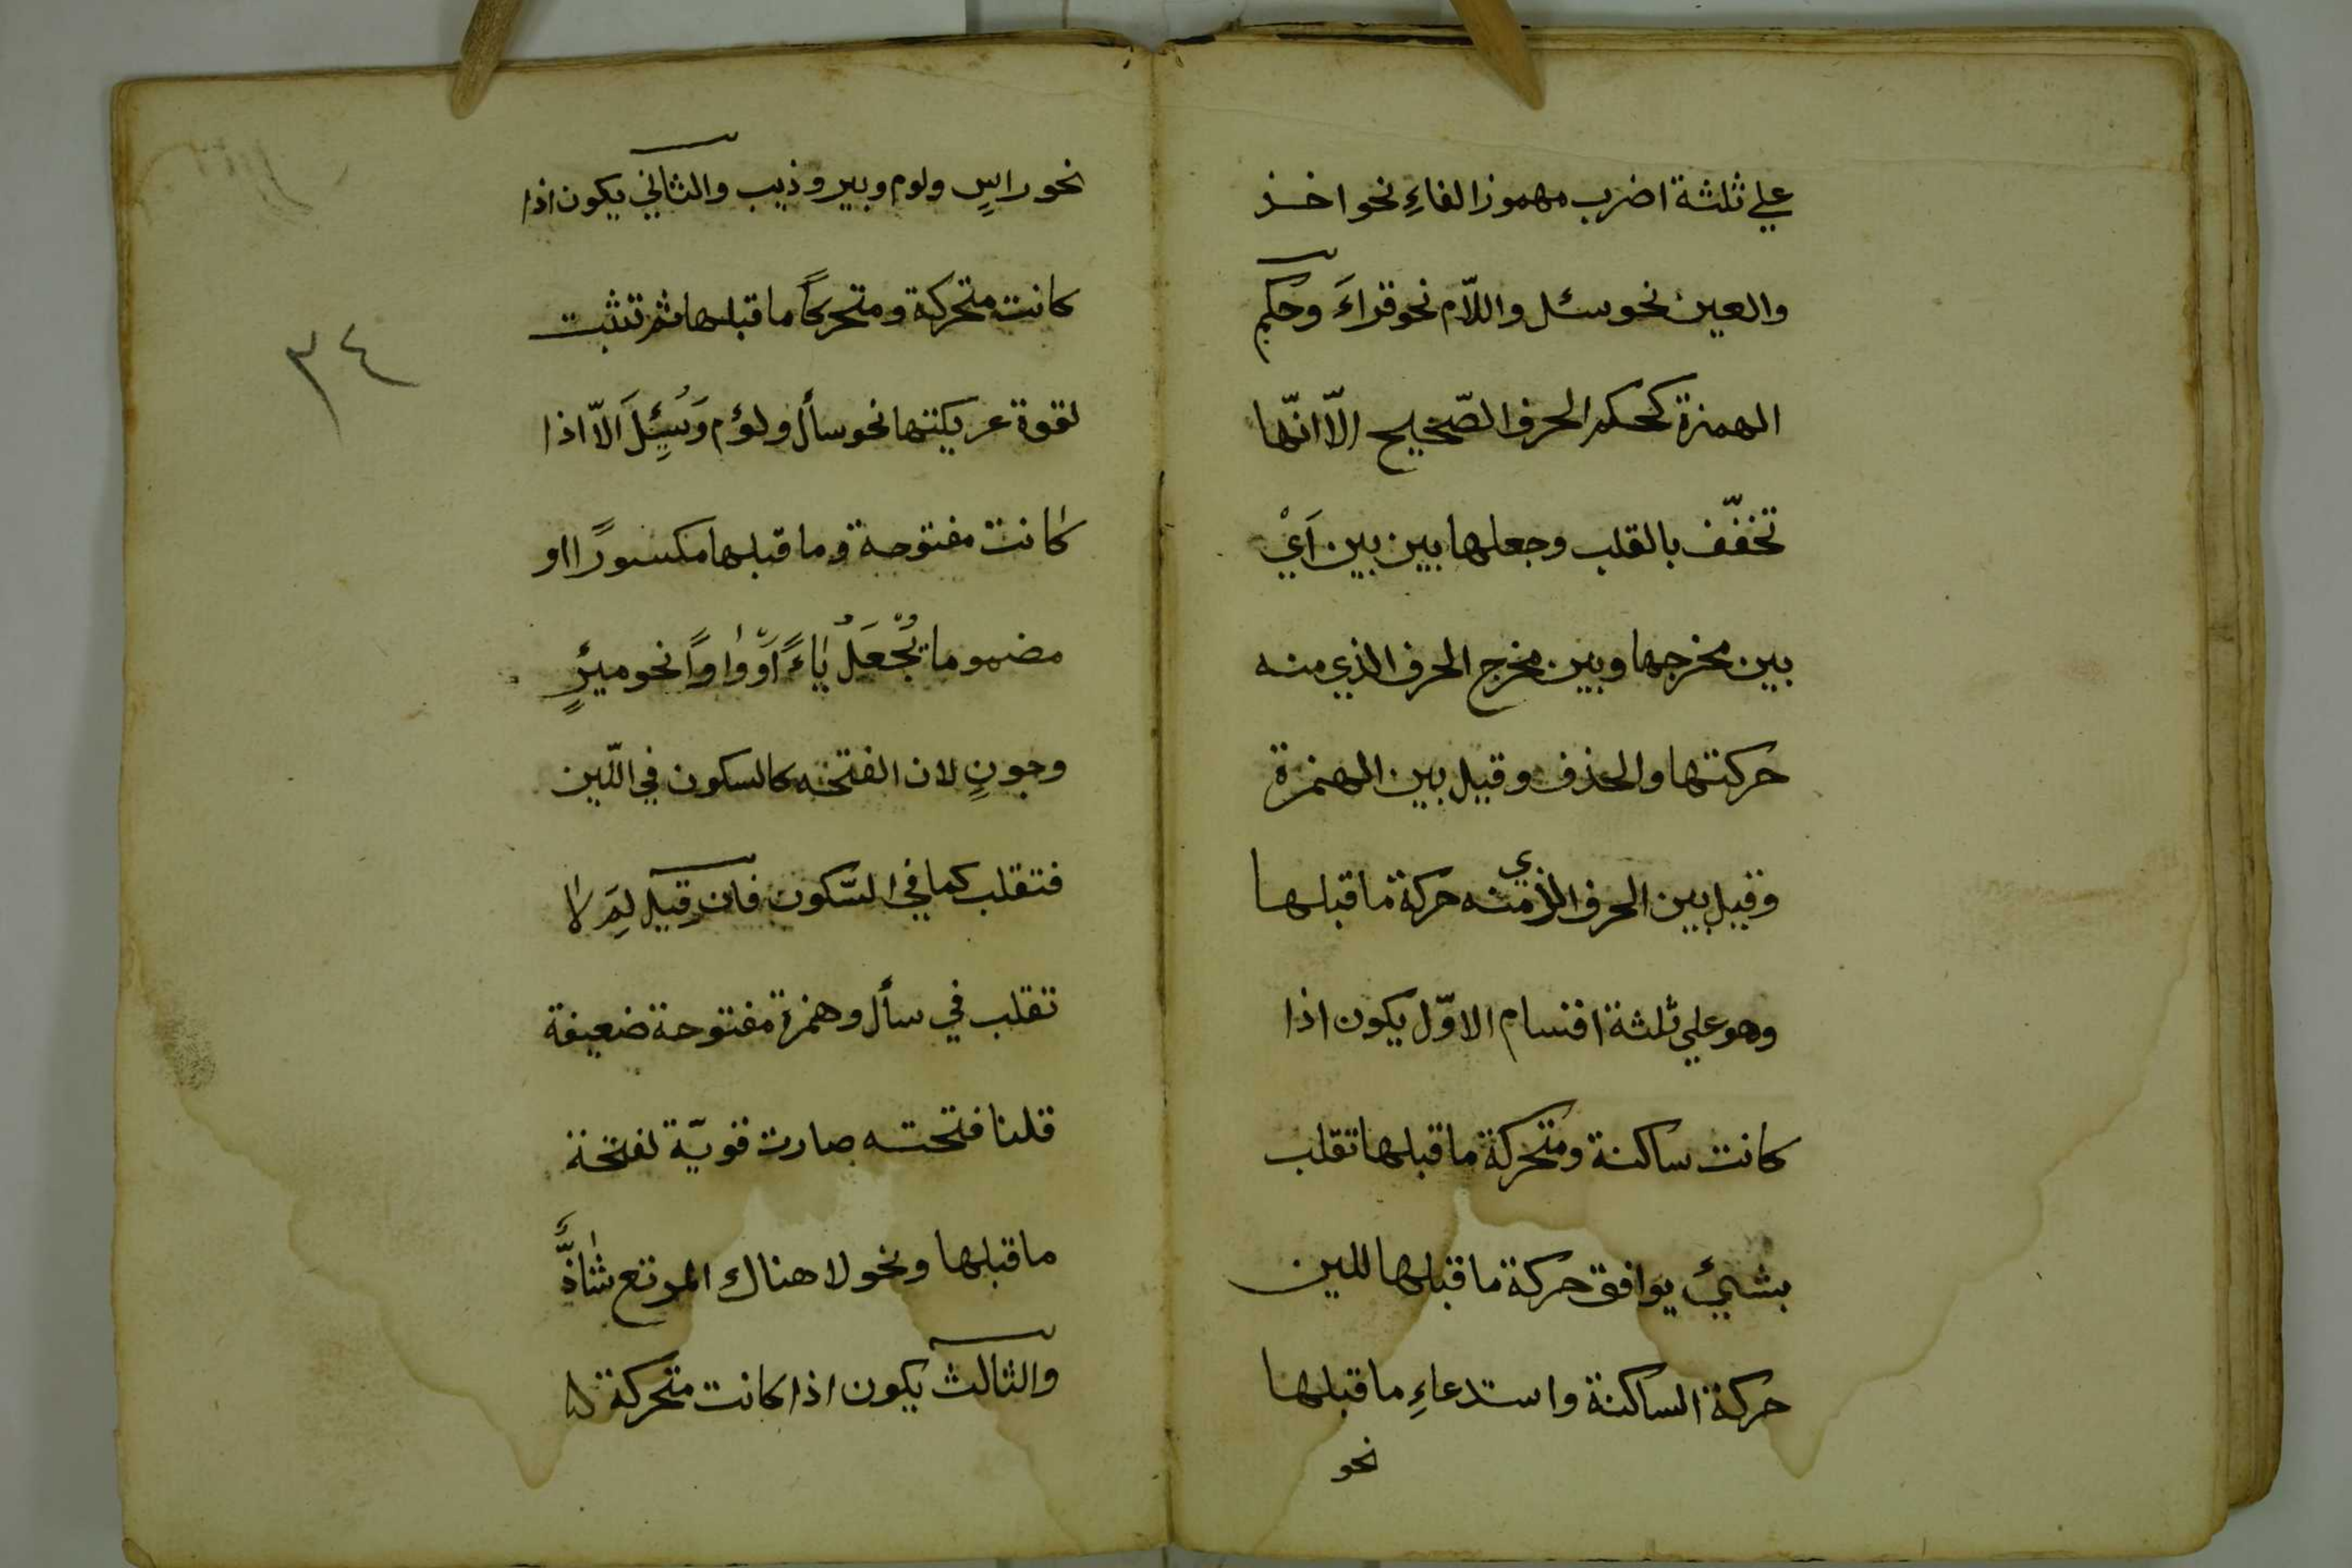 علي ثلثة اضرب مهموز الفاءِ نحو اخذ
والعين نحو سئل واللّام نحو قراءَ وحكم
الهمزة كحكم الحرف الصّحيح الّا انّها
تخفّف بالقلب وجعلها بين بين اَيْ
بين مخرجها وبين مخرج الحرف الذي منه
حركتها والحذف وقيل بين الهمزة
وقيل بين الحرف الذي منه حركة ما قبلها
وهو علي ثلثة اقسام الاوّل يكون اذا
كانت ساكنة ومتحركة ما قبلها تقلب
بشيئ يوافق حركة ما قبلها للين
حركة الساكنة واستدعاءِ ما قبلها
نحو
نحو راسٍ ولوم وبير وذيب والثاني يكون اذا
كانت متحركة ومتحركاً ما قبلها ثم تثبت
٣٤
لقوة عريكتها نحو سأل ولؤم وَسُئِلَ الّا اذا
كانت مفتوحة وما قبلها مكسورًا او
مضموما تُجْعَلُ ياءً اَوْ واوًا نحو ميئرٍ
وجونٍ لان الفتحه كالسكون في اللّين
فتقلب كما في السّكون فان قيل لِمَ لا
تقلب في سأل وهمزة مفتوحة ضعيفة
قلنا فتحته صارت قويّة لفتحة
ما قبلها ونحو لا هناك المرتع شاذٌّ
والثالث يكون اذا كانت متحركة